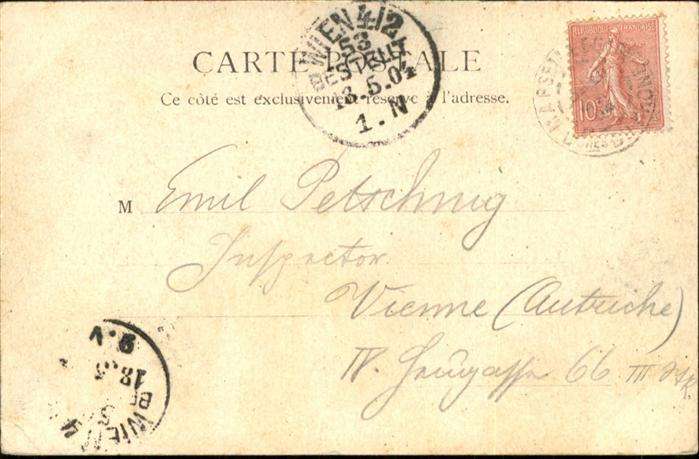 CARTE POSTALE
Ce côté est exclusivement réservé à l'adresse.
WIEN 4/2
53
BESTELLT
13.5.04
1.N
RÉPUBLIQUE FRANÇAISE
10
M Emil Petschnig
Inspector
Vienne (Autriche)
IV. 66 III
9.V
WIEN 4